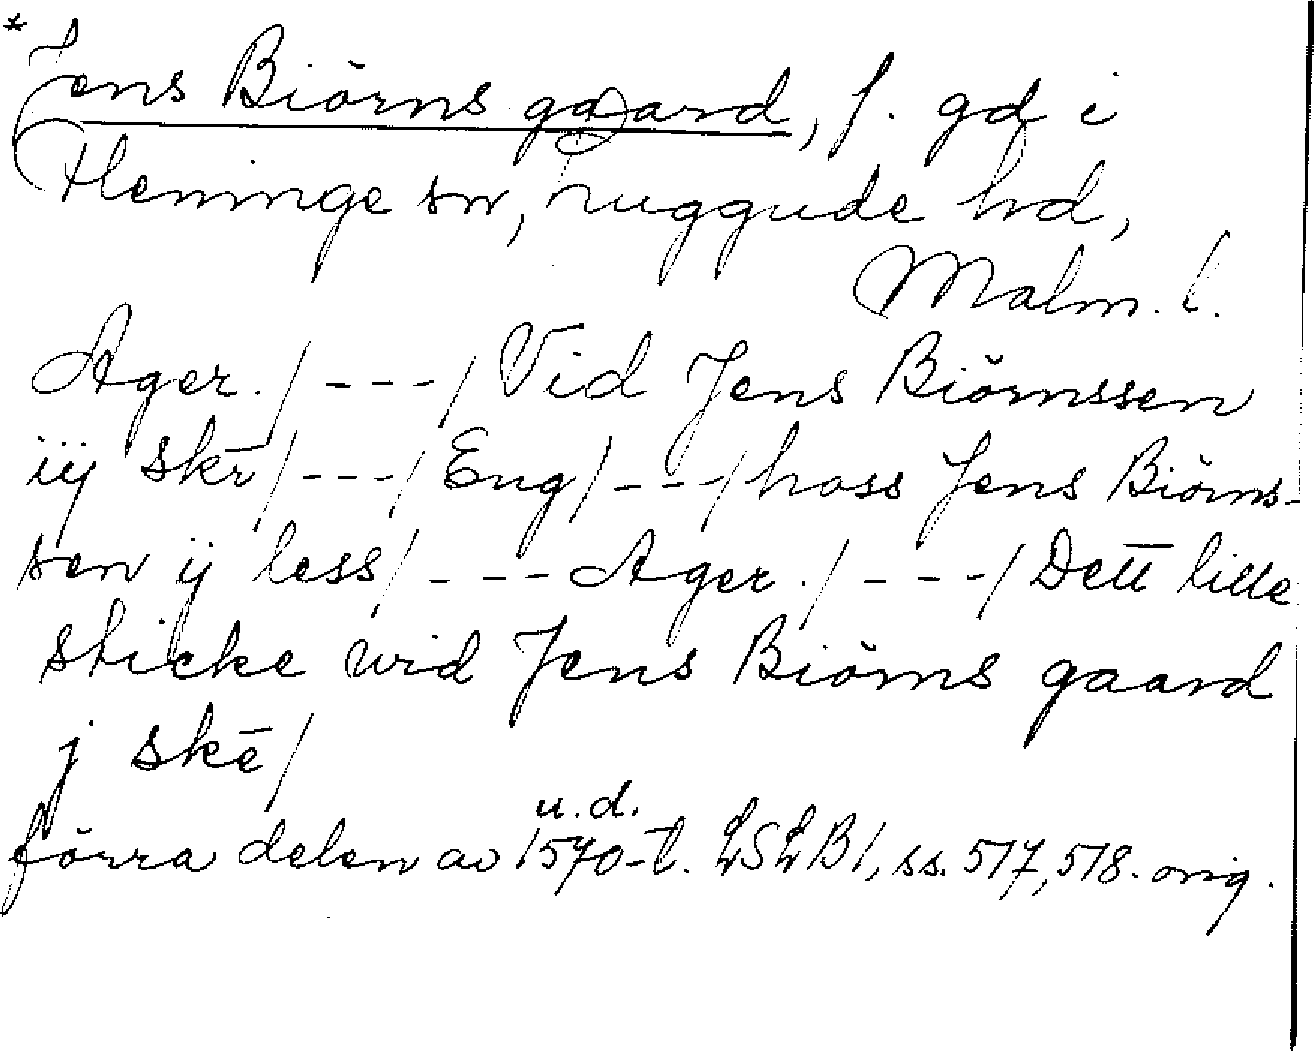 *Jens Biörns gaard, f. gd i
Fleninge sn, Luggude hd,
Malm. l.
Ager. / --- / Vid Jens Biörnssen
iij skr̄ / --- / Eng / --- / hoss Jens Biörns-
sen ij less / --- Ager. / --- / Dett lille
sticke wid Jens Biörns gaard
j skē /
u.d.
förra delen av 1570-t. LSLB1, ss. 517, 518. orig.